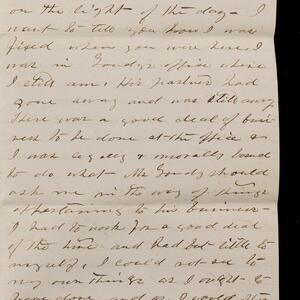 on the light of the day – I
want to tell you how I was
fixed when you were here. I
was in Goudy's office where
I still am. His partner had
gone away and was still away
There was a good deal of busi-
ness to be done at the office &
I was legally & morally bound
to do what Mr Goudy should
ask me in the way of things
appertaining to his business –
I had to work for a good deal
of the time and had but little to
myself, I could not see to
my own things as I ought to
have done and as I